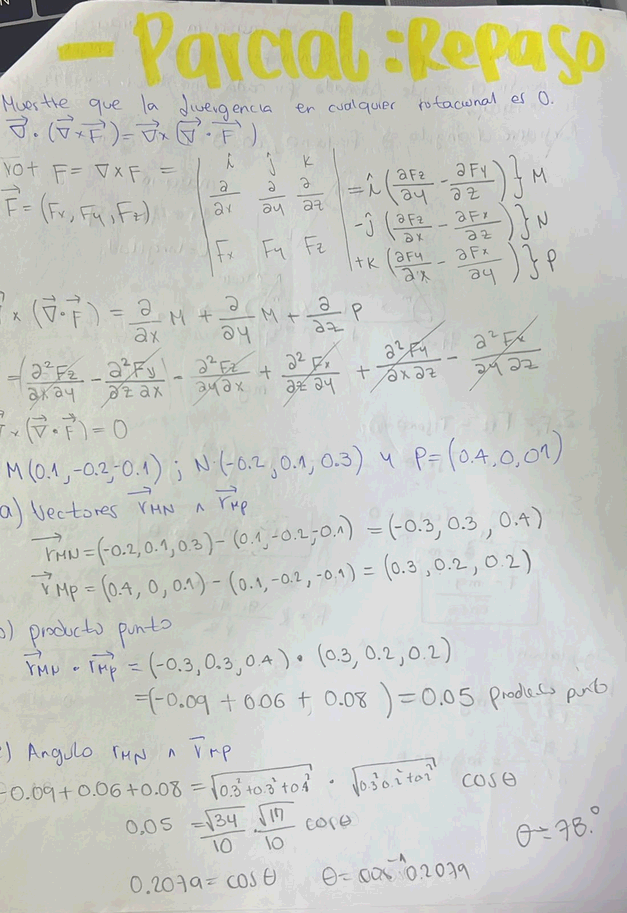 - Parcial: Repaso
Muestre que la divergencia en cualquier rotacional es 0.
∇⃗ · (∇⃗ × F⃗) = ∇⃗ × (∇⃗ · F⃗)
rot F = ∇ × F = | i j k | = î (∂Fz/∂y - ∂Fy/∂z) } M
F⃗ = (Fx, Fy, Fz) | ∂/∂x ∂/∂y ∂/∂z | -ĵ (∂Fz/∂x - ∂Fx/∂z) } N
| Fx Fy Fz | +k (∂Fy/∂x - ∂Fx/∂y) } P
× (∇⃗ · F⃗) = ∂/∂x M + ∂/∂y M + ∂/∂z P
= (∂²Fz/∂x∂y - ∂²Fy/∂z∂x - ∂²Fz/∂y∂x + ∂²Fx/∂z∂y + ∂²Fy/∂x∂z - ∂²Fx/∂y∂z
× (∇⃗ · F⃗) = 0
M(0.1, -0.2, -0.1) ; N(-0.2, 0.1, 0.3) y P = (0.4, 0, 0.1)
a) Vectores r⃗MN ∧ r⃗MP
r⃗MN = (-0.2, 0.1, 0.3) - (0.1, -0.2, -0.1) = (-0.3, 0.3, 0.4)
r⃗MP = (0.4, 0, 0.1) - (0.1, -0.2, -0.1) = (0.3, 0.2, 0.2)
) producto punto
r⃗MN · r⃗MP = (-0.3, 0.3, 0.4) · (0.3, 0.2, 0.2)
= (-0.09 + 0.06 + 0.08) = 0.05 producto punto
) Angulo rMN ∧ r̅MP
-0.09 + 0.06 + 0.08 = √0.3² + 0.3² + 0.4² · √0.3² 0.2² + 0.2² cos θ
0.05 = √34/10 · √17/10 cos θ
θ = 78.°
0.2079 = cos θ θ = cos⁻¹ 0.2079